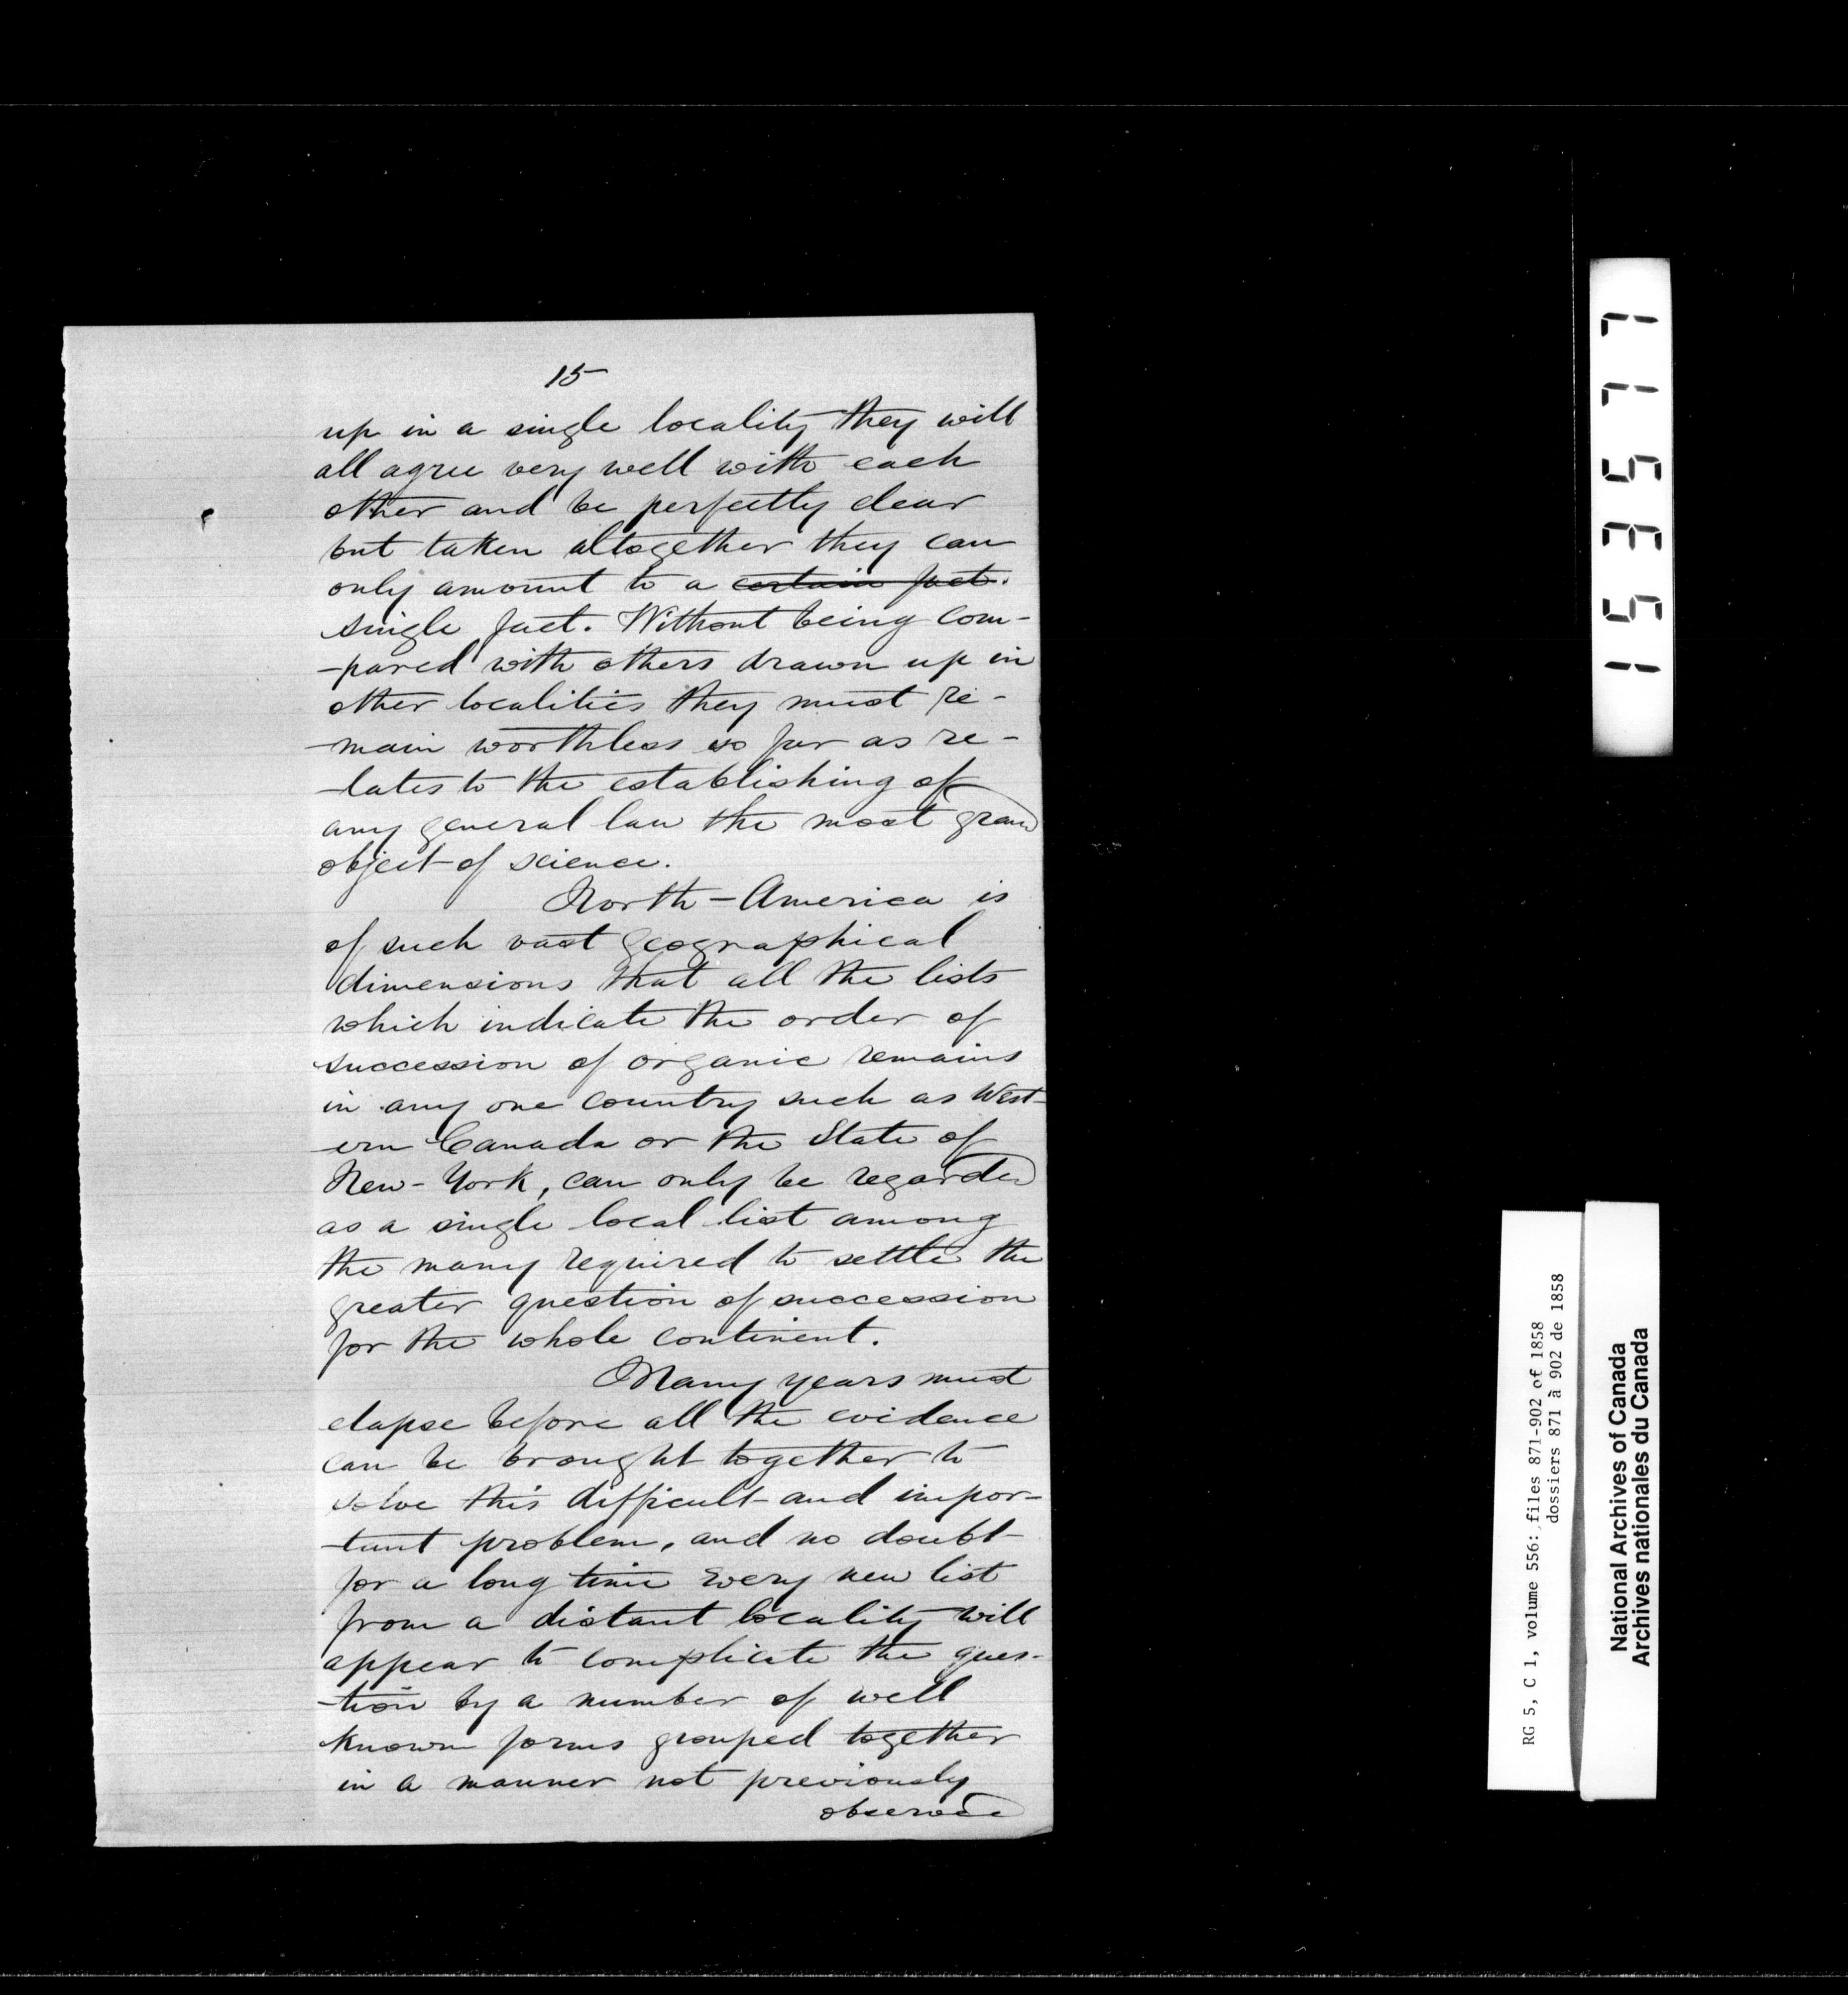 15
up in a single locality they will
all agree very well with each
other and be perfectly clear
but taken altogether they can
only amount to a certain fact.
single fact. Without being com-
-pared with others drawn up in
other localities they must re-
-main worthless so far as re-
-lates to the establishing of
any general law the most grand
object of science.
North-America is
of such vast geographical
dimensions that all the lists
which indicate the order of
succession of organic remains
in any one country such as West-
-ern Canada or the State of
New-York, can only be regarded
as a single local list among
the many required to settle the
greater question of succession
for the whole continent.
Many years must
elapse before all the evidence
can be brought together to
solve this difficult and impor-
-tant problem, and no doubt
for a long time every new list
from a distant locality will
appear to complicate the ques-
-tion by a number of well
known forms grouped together
in a manner not previously
observed
153577
RG 5, C 1, volume 556: files 871-902 of 1858
dossiers 871 à 902 de 1858
National Archives of Canada
Archives nationales du Canada